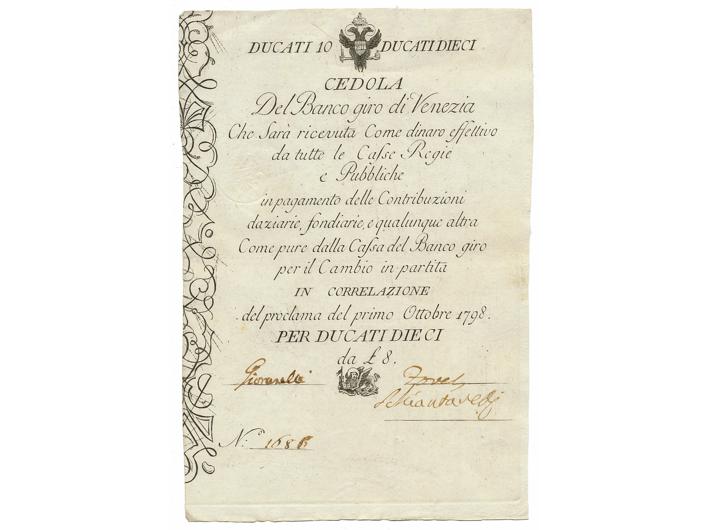 DUCATI 10 DUCATI DIECI
CEDOLA
Del Banco giro di Venezia
Che Sarà ricevuta Come dinaro effettivo
da tutte le Casse Regie
e Pubbliche
in pagamento delle Contribuzioni
daziarie, fondiarie, e qualunque altra
Come pure dalla Cassa del Banco giro
per il Cambio in partita
IN CORRELAZIONE
del proclama del primo Ottobre 1798.
PER DUCATI DIECI
da £ 8.
N.º